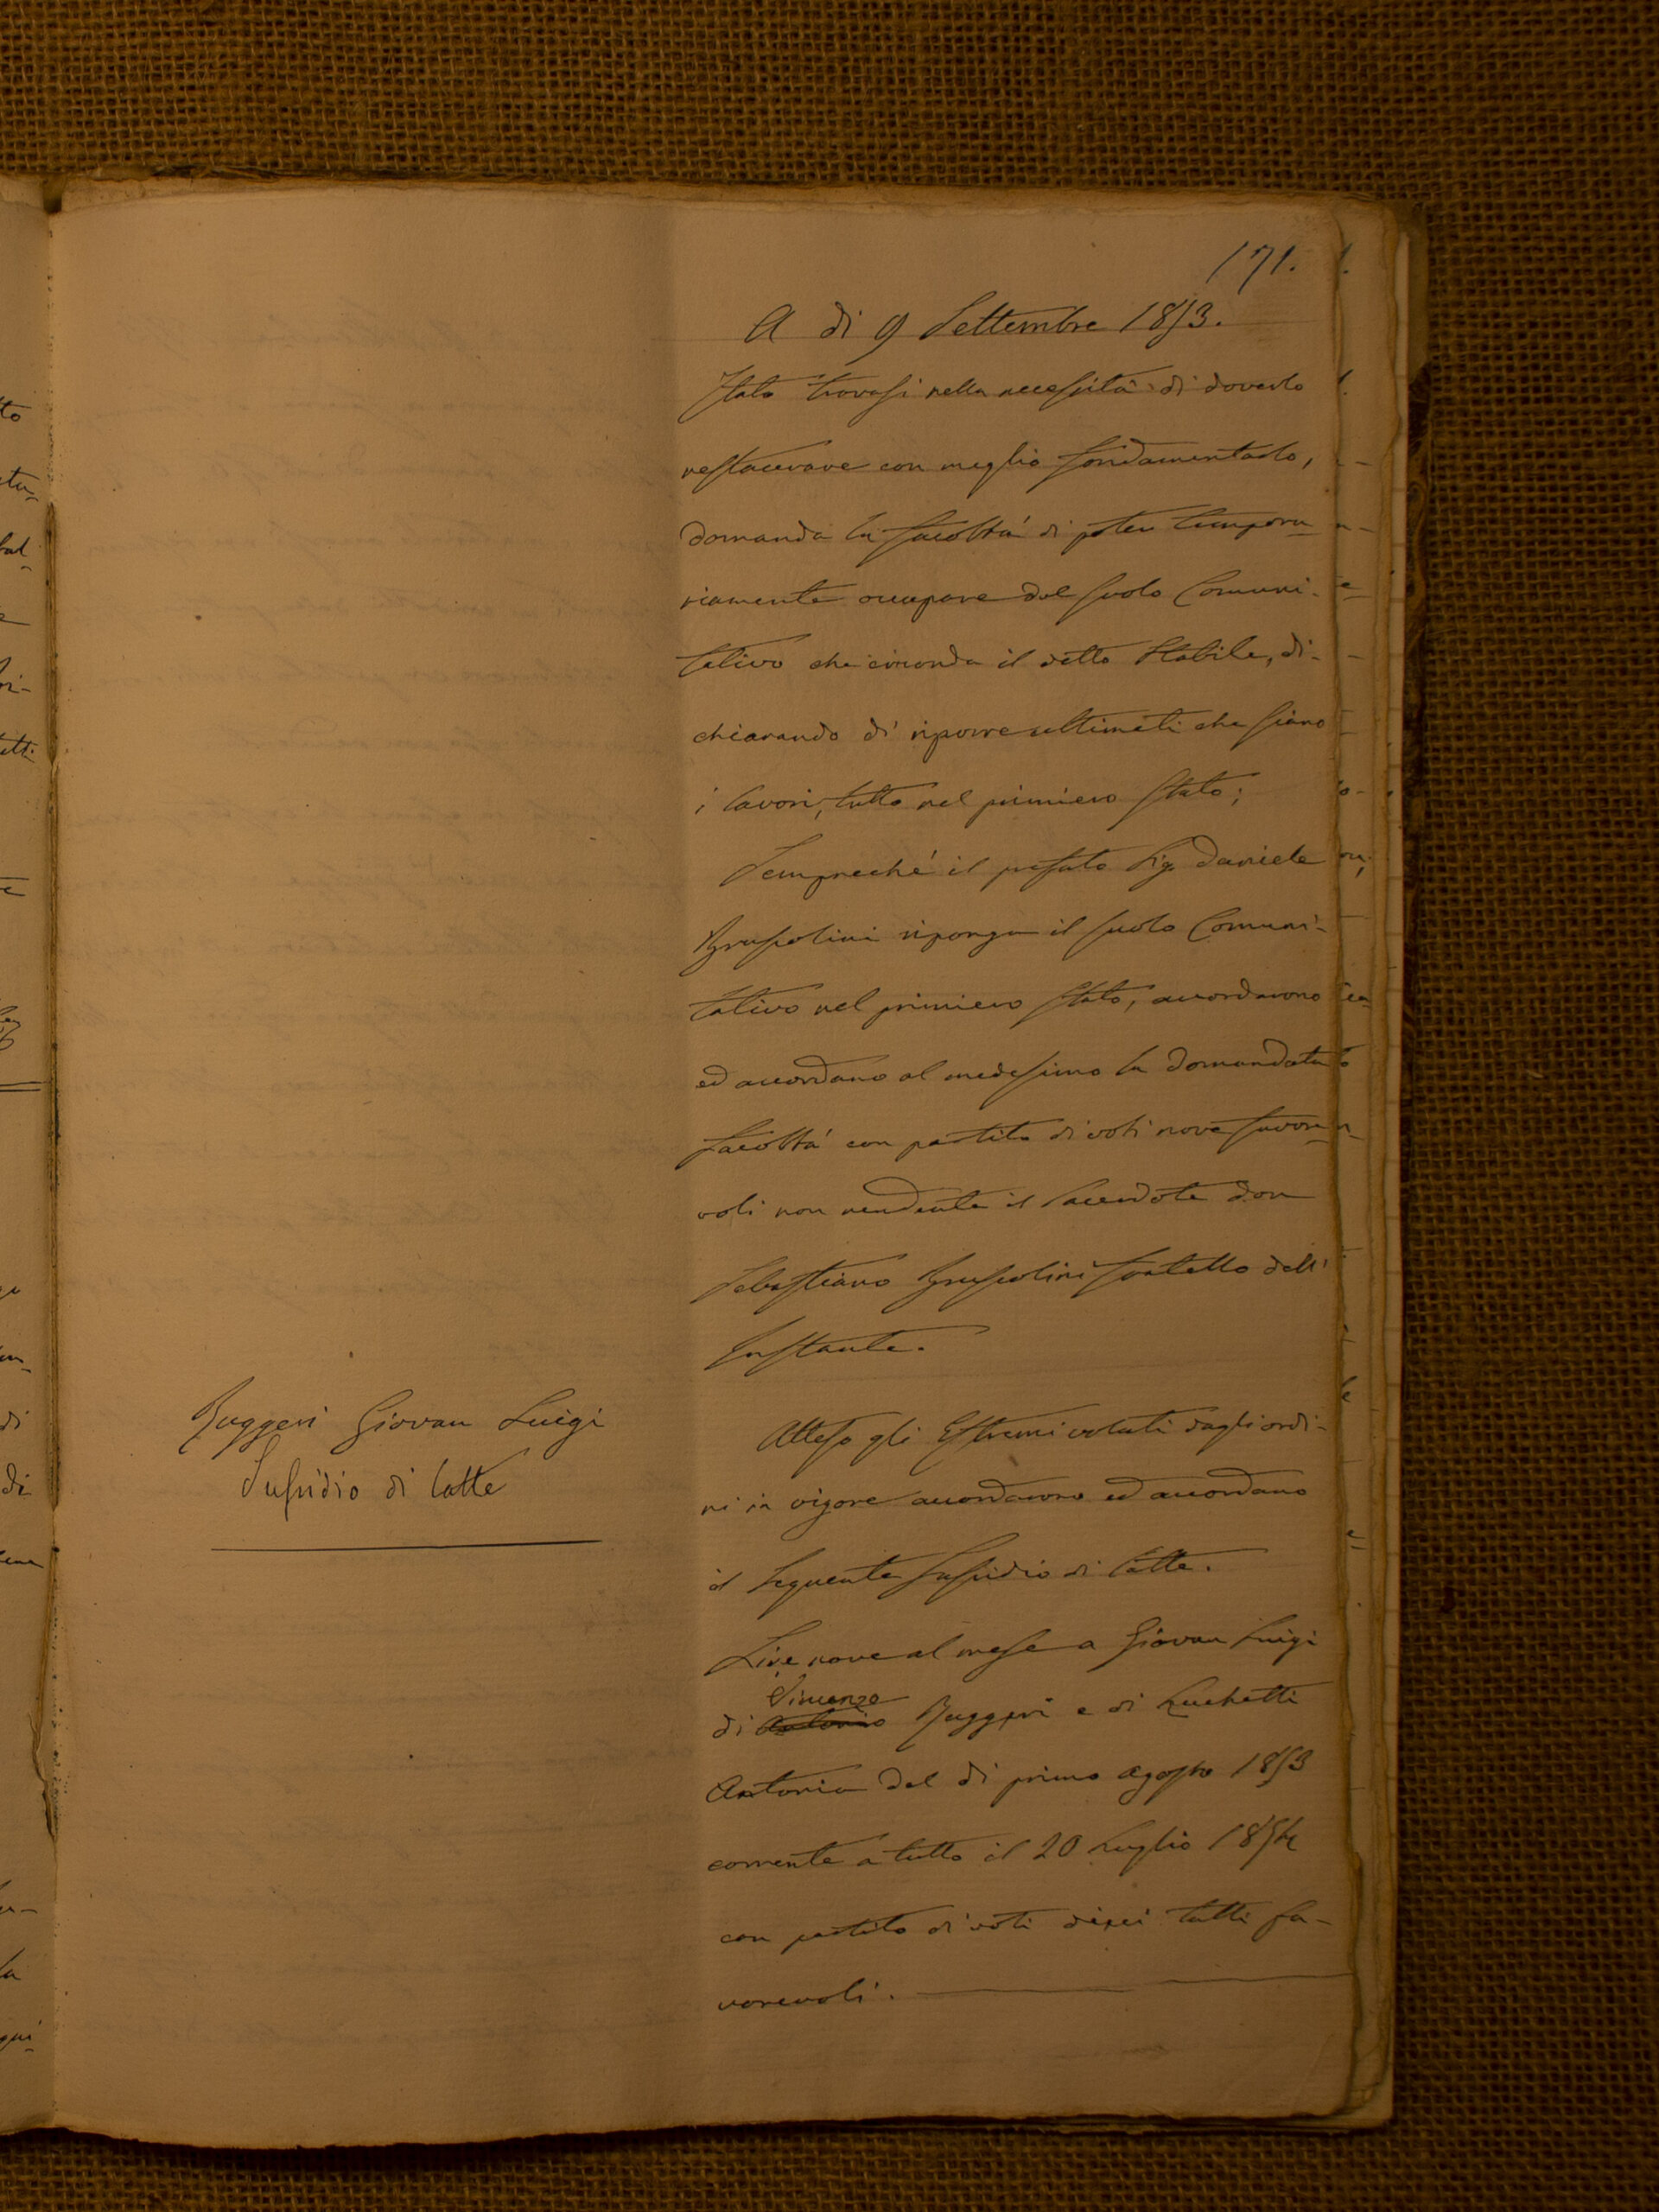 171.
A dì 9 Settembre 1853.
Stato trovasi nella necessità di doverlo
restaurare con meglio fondamentarlo,
domanda la facoltà di poter tempora-
riamente occupare del suolo Comuni-
tativo che circonda il detto Stabile, di-
chiarando di riporre ultimati che siano
i lavori, tutto nel primiero stato;
Sempreché il prefato Sig. Daniele
Bruscolini riponga il suolo Comuni-
tativo nel primiero stato, accordarono
ed accordano al medesimo la domandata
facoltà con partito di voti nove favore-
voli non rendente il Sacerdote Don
Sebastiano Bruscolini fratello dell'
Instante.
Ruggeri Giovan Luigi
Sussidio di latte
Atteso gli Estremi voluti dagli ordi-
ni in vigore accordarono ed accordano
il seguente sussidio di latte.
Lire nove al mese a Giovan Luigi
Vincenzo
di Antonio Ruggeri e di Luchetti
Antonia dal dì primo Agosto 1853
corrente a tutto il 20 Luglio 1854
con partito di voti dieci tutti fa-
vorevoli.